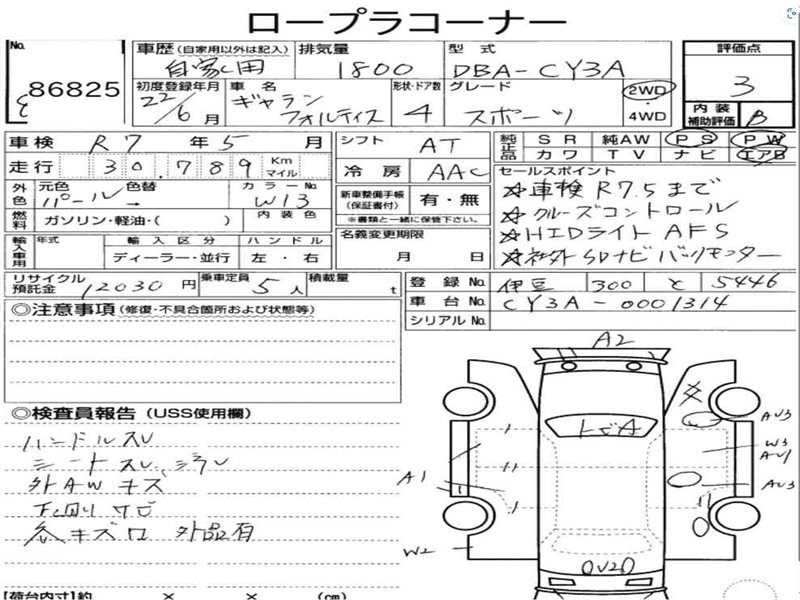 ロープラコーナー
No. 86825
車歴 (自家用以外は記入) 自家用
排気量 1800
型式 DBA-CY3A
評価点 3
内装補助評価 B
初度登録年月 22/6月
車名 ギャランフォルティス
形状・ドア数 4
グレード スポーツ
2WD・4WD
車検 R7年5月
シフト AT
純正品 SR 純AW PS PW
カワ TV ナビ エアB
走行 30,789 Km マイル
冷房 AAC
セールスポイント
☆車検R7.5まで
☆クルーズコントロール
☆HIDライト AFS
☆社外SDナビ バックモニター
外色 元色 パール 色替 → カラーNo. W13
新車整備手帳(保証書付) 有・無
※書類と一緒に保管下さい。
燃料 ガソリン・軽油・( ) 内装色
名義変更期限 月 日
輸入車用 年式 輸入区分 ハンドル
ディーラー・並行 左・右
リサイクル預託金 12030円
乗車定員 5人
積載量 t
登録No. 伊豆 300 と 5446
車台No. CY3A-0001314
シリアルNo.
◎注意事項 (修復・不具合箇所および状態等)
◎検査員報告 (USS使用欄)
ハンドルスレ
シートスレ、
外AW キズ
下廻りサビ
キズ 外品有
A2
トビA
AU3
W3
AU1
AU3
A1
W2
【荷台内寸】約 × × (cm)